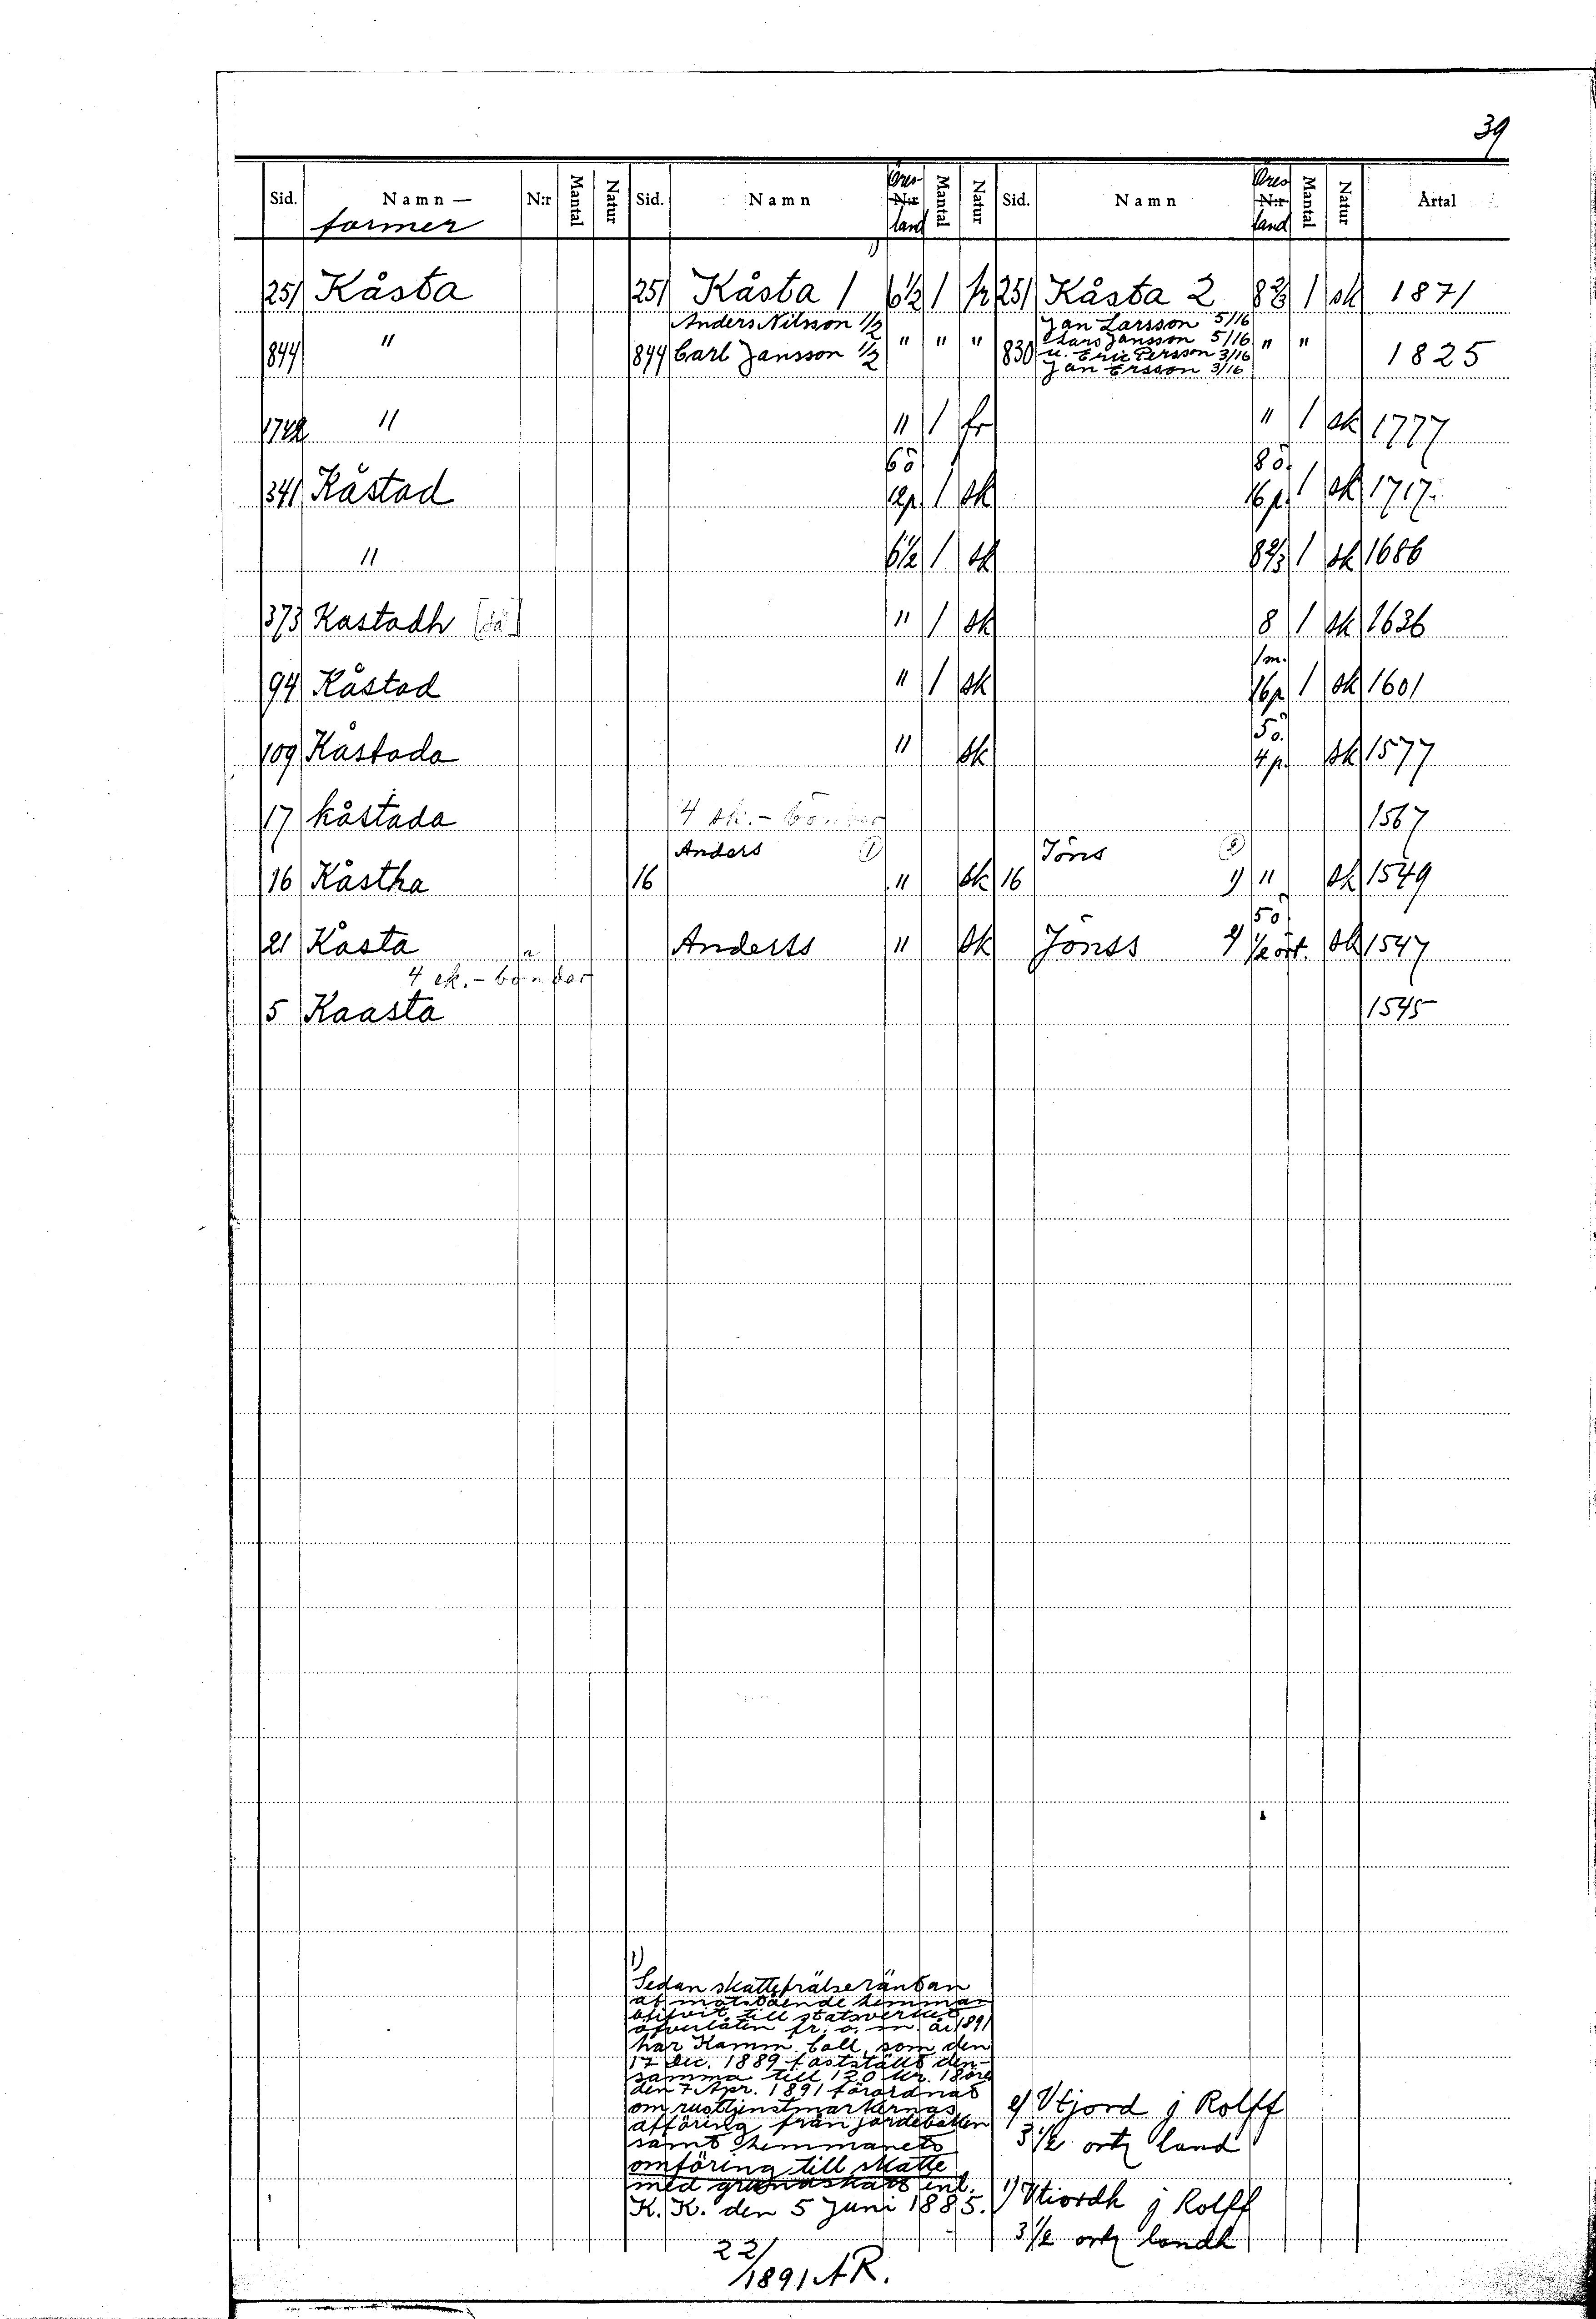 39
Sid. Namn — N:r Mantal Natur Sid. Namn Öres- N:r land Mantal Natur Sid. Namn Öres N:r land Mantal Natur Årtal
former
1)
251 Kåsta 251 Kåsta 1 6½ 1 fr 251 Kåsta 2 8⅔ 1 sk 1871
Anders Nilsson 1/2 Jan Larsson 5/16
844 " 844 Carl Jansson 1/2 " " " 830 Lars Jansson 5/16 " " 1825
u. Eric Persson 3/16
Jan Ersson 3/16
" " 1 fr " 1 sk 1777
6ö 8ö.
341 Kåstad 12p. 1 sk 16p. 1 sk 1717.
" 6½ 1 sk 8⅔ 1 sk 1686
373 Kastadh [så] " 1 sk 8 1 sk 1636
1m.
94 Kåstad " 1 sk 16p 1 sk 1601
5ö.
109 Kåstada " sk 4p sk 1577
17 kåstada 4 sk.-bönder 1567
Anders 1 Jöns 2
16 Kåstha 16 " sk 16 1) " sk 1549
5ö
21 Kåsta Anderss " sk Jönss 2) ½ ört. sk 1547
4 sk.-bönder
5 Kaasta 1545
1)
Sedan skattefrälseräntan
af motstående hemman
blifvit till statsverket
öfverlåten fr. o. m. år 1891
har Kamm. Coll., som den
17 Dec. 1889 fastställt den-
samma till 130 kr. 18 öre
den 7 Apr. 1891 förordnat
om rusttjenstmarkernas
afföring från jordeboken
samt hemmanets
omföring till skatte
med grundskatt enl.
K. K. den 5 Juni 1885.
22/1891 AR.
2) Vtjord j Rolff
3½ ortz land
1) Vtiordh j Rolff
3½ ortz landh